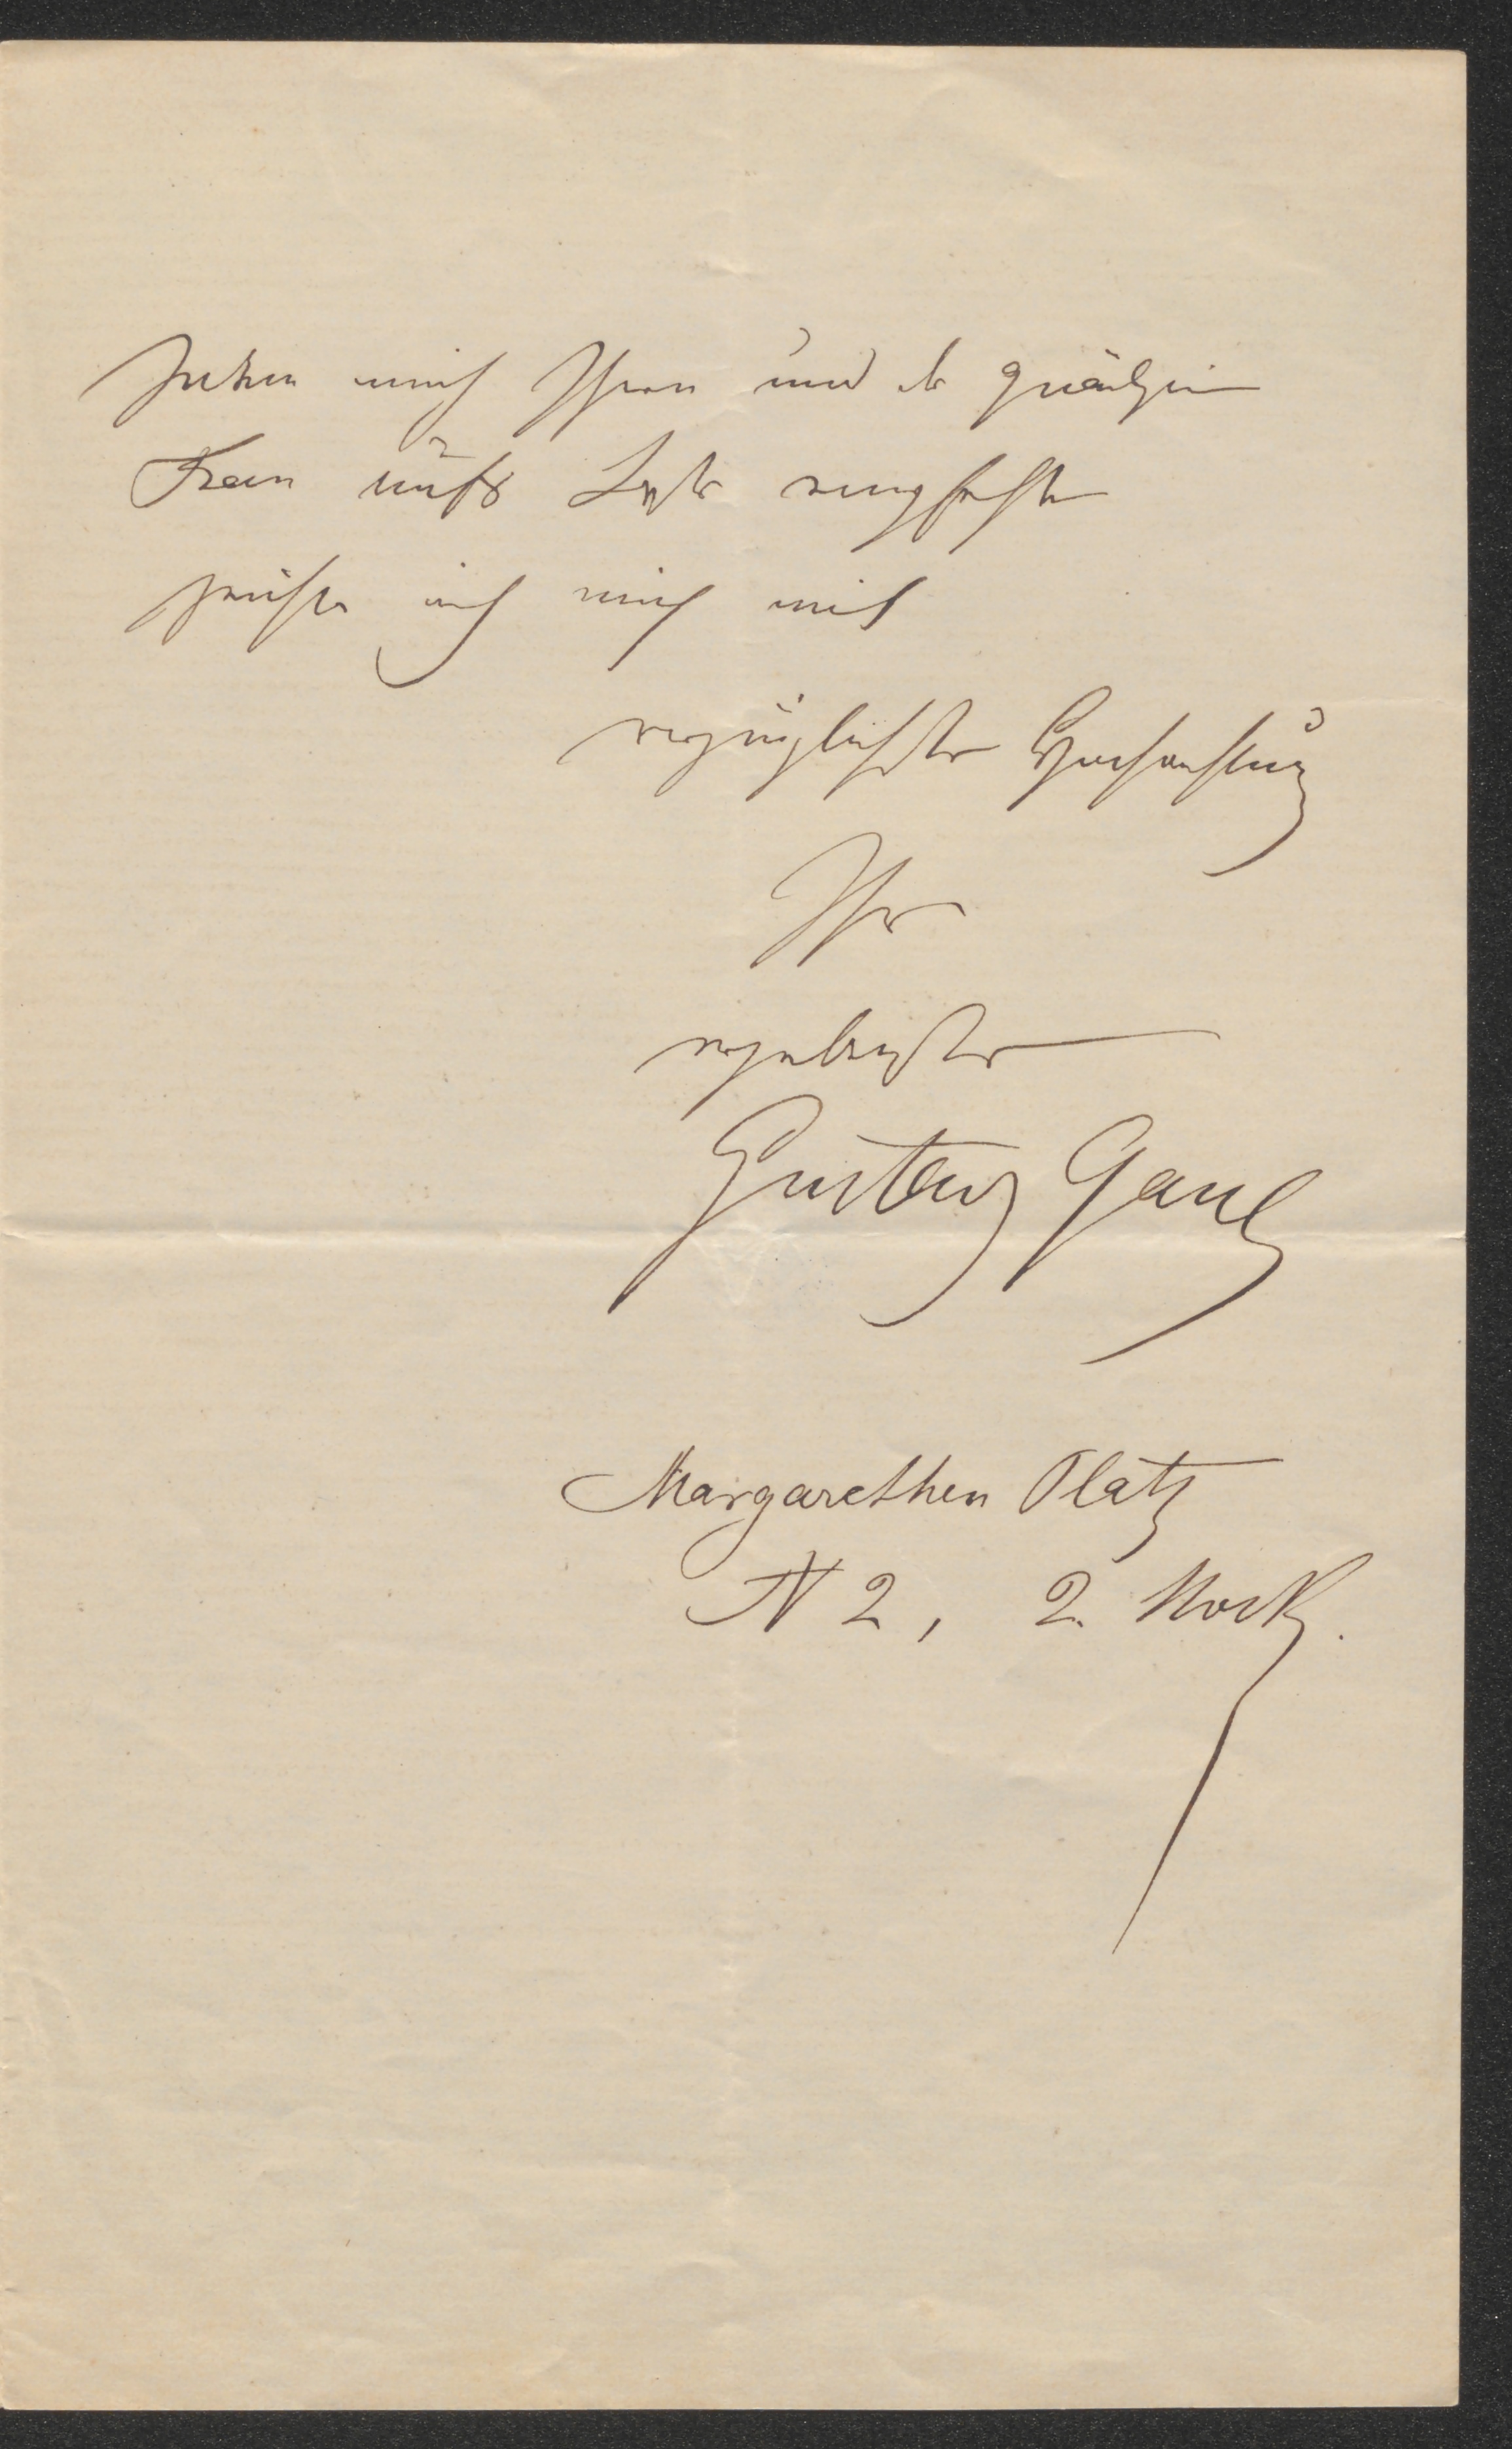 Indem mich Ihnen und der gnädigen
Frau aufs Beste empfehle
zeichne ich mich mit
vorzüglichster Hochachtung
Ihr
ergebenster
Gustav Gaul
Margarethen Platz
N 2, 2. Stock.